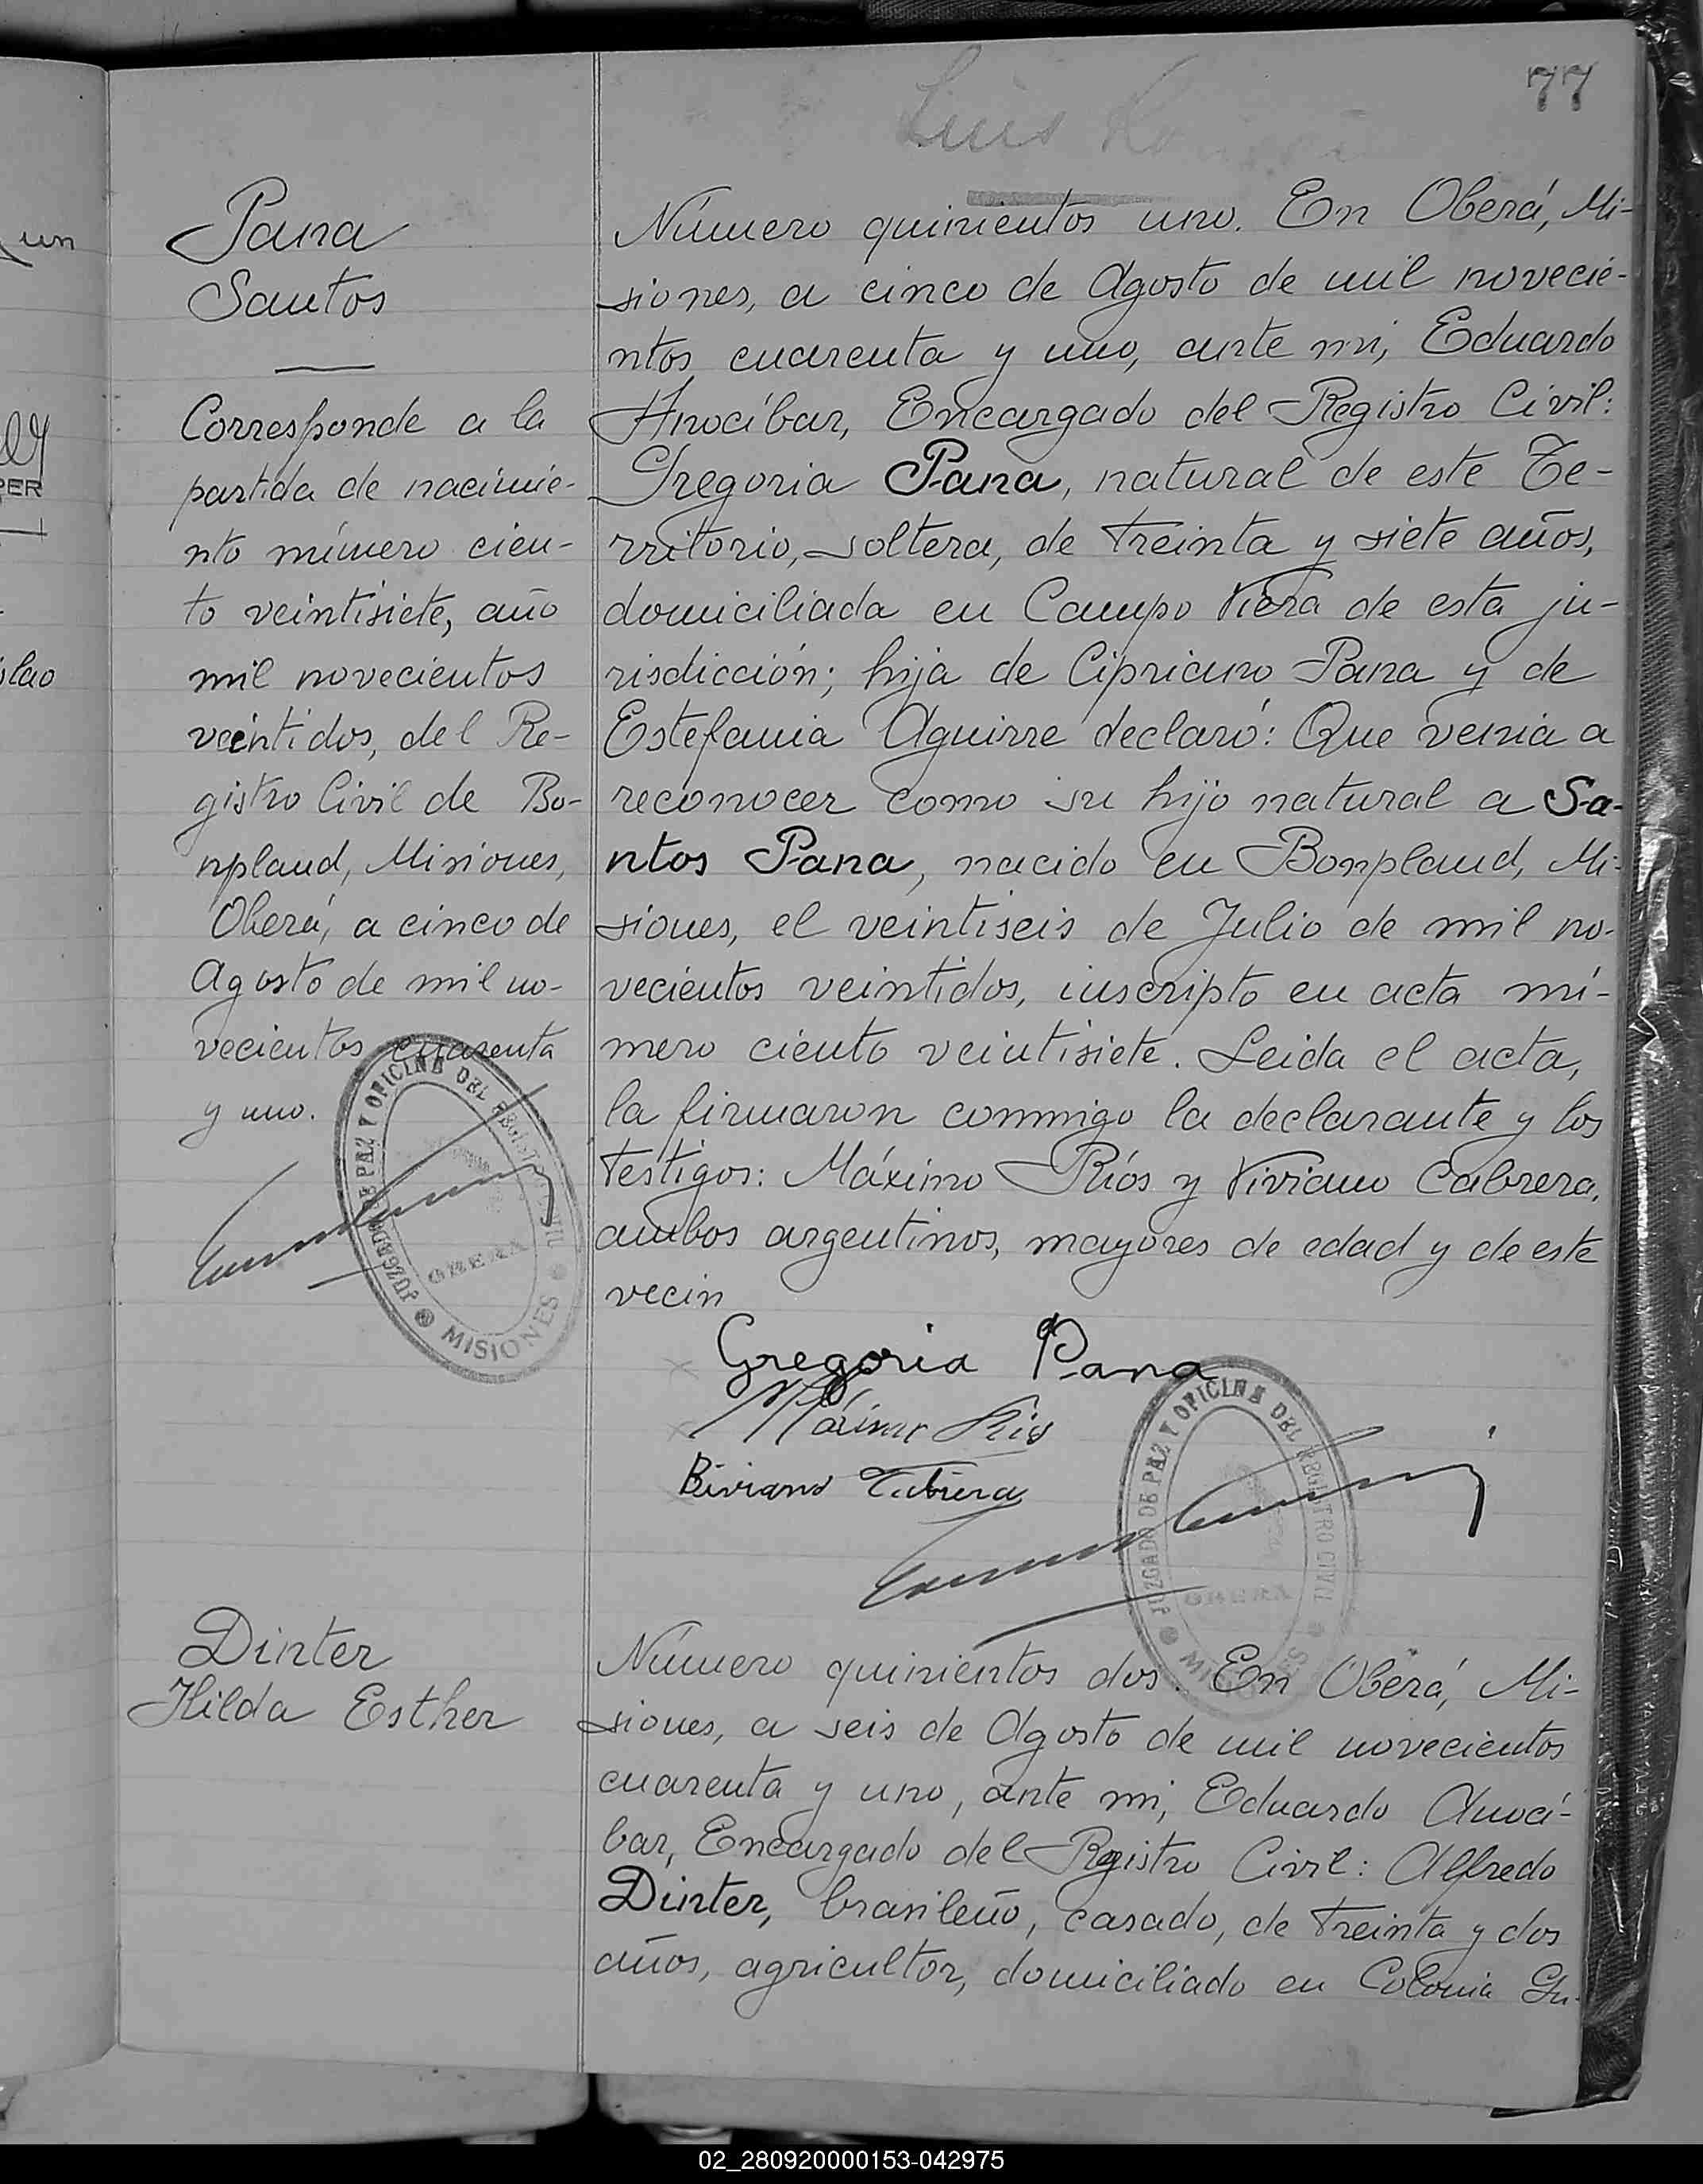 77
Luis
Pana
Santos
Corresponde a la
partida de nacimie-
nto número cien-
to veintisiete, año
mil novecientos
veintidos, del Re-
gistro Civil de Bo-
npland, Misiones,
Oberá, a cinco de
Agosto de mil no-
vecientos cuarenta
y uno.
JUZGADO DE PAZ Y OFICINA DEL REGISTRO CIVIL
OBERA
MISIONES
Número quinientos uno. En Oberá, Mi-
siones, a cinco de Agosto de mil novecie-
ntos cuarenta y uno, ante mi, Eduardo
Anocíbar, Encargado del Registro Civil:
Gregoria Pana, natural de este Te-
rritorio, soltera, de treinta y siete años,
domiciliada en Campo Viera de esta ju-
risdicción; hija de Cipriano Pana y de
Estefania Aguirre declaró: Que venia a
reconocer como su hijo natural a Sa-
ntos Pana, nacido en Bonpland, Mi-
siones, el veintiseis de Julio de mil no-
vecientos veintidos, inscripto en acta nú-
mero ciento veintisiete. Leida el acta,
la firmaron conmigo la declarante y los
testigos: Máximo Ríos y Viviano Cabrera,
ambos argentinos, mayores de edad y de este
vecin
Gregoria Pana
Máximo Rios
Biviano Cabrera
JUZGADO DE PAZ Y OFICINA DEL REGISTRO CIVIL
OBERA
MISIONES
Dinter
Hilda Esther
Número quinientos dos. En Oberá, Mi-
siones, a seis de Agosto de mil novecientos
cuarenta y uno, ante mi, Eduardo Anocí-
bar, Encargado del Registro Civil: Alfredo
Dinter, brasileño, casado, de treinta y dos
años, agricultor, domiciliado en Colonia Gu-
un
PER
lao
02_280920000153-042975